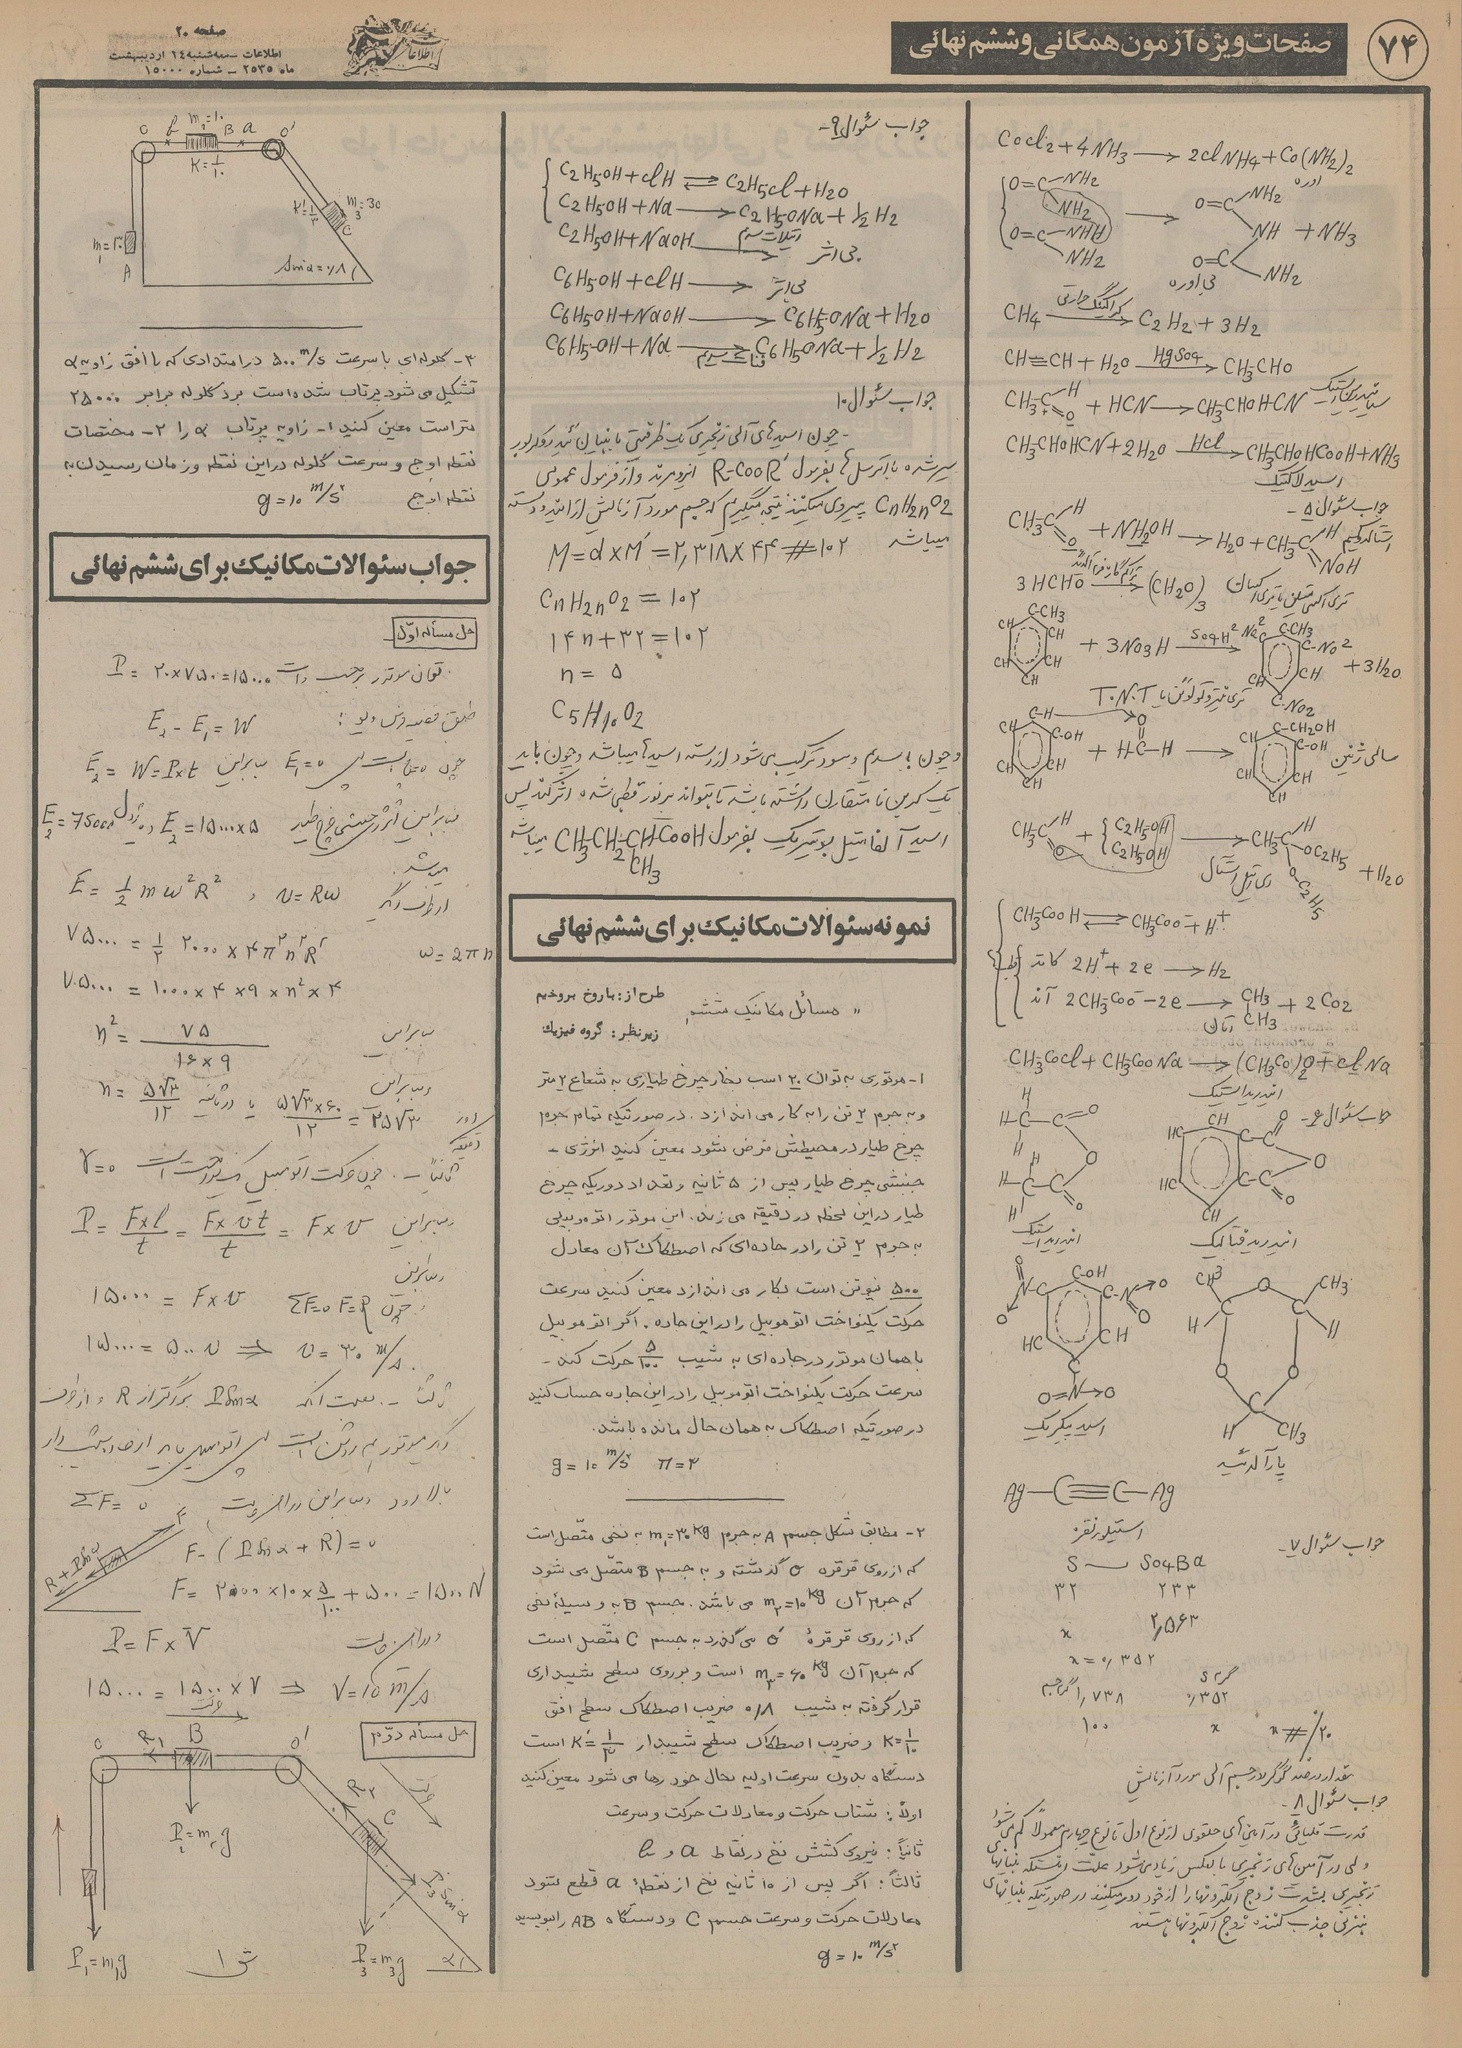 ۷۴
صفحات ویژه آزمون همگانی و ششم نهائی
صفحه ۲۰
اطلاعات ـ سه‌شنبه ۱۴ اردیبهشت
ماه ۲۵۳۵ ـ شماره ۱۵۰۰۰
CoCl2 + 4NH3 → 2ClNH4 + Co(NH2)2
اوره
O=C NH2 NH2
O=C NHH NH2
→ O=C NH2 NH O=C NH2 + NH3
بی اوره
CH4 کراکینگ حرارتی → C2H2 + 3H2
CH≡CH + H2O HgSO4 → CH3CHO
CH3-C H O + HCN → CH3CHOH-CN
CH3CHOHCN + 2H2O HCl → CH3CHOHCOOH + NH3
اسید لاکتیک
جواب سئوال ۵ـ
CH3-C H O + NH2OH → H2O + CH3-C H NOH
3 HCHO → (CH2O)3
+ 3NO3H SO4H2 → + 3H2O
تری نیترو تولوئن یا T.N.T
C-OH + H-C-H → C-CH2OH C-OH
CH3-C H O + { C2H5OH C2H5OH → CH3-C H OC2H5 O-C2H5 + H2O
دی اتیل استال
CH3COOH ⇌ CH3COO⁻ + H⁺
کاتد 2H⁺ + 2e → H2
آند 2CH3COO⁻ - 2e → CH3 CH3 + 2CO2
اتان
CH3COCl + CH3COONa → (CH3CO)2O + ClNa
انیدرید استیک
جواب سئوال ۶ـ
انیدرید استیک
انیدرید فتالیک
اسید پیکریک
پارآلدئید
Ag—C≡C—Ag
استیلور نقره
جواب سئوال ۷ـ
S — SO4Ba
۳۲ ۲۳۳
x ۲٫۵۶۳
x = ۰٫۳۵۲
۱٫۷۳۸ ۰٫۳۵۲
۱۰۰ x x # ٪۲۰
مقدار درصد گوگرد در جسم آلی مورد آزمایش
جواب سئوال ۸ـ
قدرت قلیائی در آمین‌های حلقوی از نوع اول تا نوع چهارم معمولاً کم می‌شود
ولی در آمین‌های زنجیری بالعکس زیاد می‌شود علت اینستکه بنیانهای
زنجیری بشدت زوج الکترونها را از خود دور میکنند در صورتیکه بنیانهای
بنزنی جذب کننده زوج الکترونها هستند
جواب سئوال ۹ـ
C2H5OH + ClH ⇌ C2H5Cl + H2O
C2H5OH + Na → C2H5ONa + 1/2 H2
اتیلات سدیم
C2H5OH + NaOH → بی اثر
C6H5OH + ClH → بی اثر
C6H5OH + NaOH → C6H5ONa + H2O
C6H5OH + Na → C6H5ONa + 1/2 H2
فنات سدیم
جواب سئوال ۱۰
ـ چون اسیدهای آلی زنجیری یک ظرفیتی با بنیان ئیدروکربور
سیر شده با استرها بفرمول R-COOR′ ایزومرند و از فرمول عمومی
CnH2nO2 پیروی میکنند نتیجه میگیریم که جسم مورد آزمایش از این دو دسته
میباشد
M = d × M′ = ۲٫۳۱۸ × ۴۴ # ۱۰۲
CnH2nO2 = ۱۰۲
۱۴n + ۳۲ = ۱۰۲
n = ۵
C5H10O2
و چون با سدیم و سود ترکیب می‌شود از رسته اسیدها میباشد و چون باید
یک کربن نامتقارن داشته باشد تا بتواند بر نور قطبی شده اثر کند پس
اسید آلفا متیل بوتیریک بفرمول CH3-CH2-CH-COOH میباشد
CH3
نمونه سئوالات مکانیک برای ششم نهائی
« مسائل مکانیک ششم
طرح از: باروخ بروخیم
زیرنظر: گروه فیزیک
۱ـ موتوری به توان ۲۰ اسب بخار چرخ طیاری به شعاع ۲ متر
و به جرم ۲ تن را به کار می اندازد. در صورتیکه تمام جرم
چرخ طیار در محیطش فرض شود معین کنید انرژی ـ
جنبشی چرخ طیار پس از ۵ ثانیه و تعداد دوریکه چرخ
طیار در این لحظه در دقیقه می زند. این موتور اتومبیلی
به جرم ۲ تن را در جاده‌ای که اصطکاک آن معادل
۵۰۰ نیوتن است بکار می اندازد معین کنید سرعت
حرکت یکنواخت اتوموبیل را در این جاده. اگر اتوموبیل
با همان موتور در جاده ای به شیب ۵/۱۰۰ حرکت کند ـ
سرعت حرکت یکنواخت اتوموبیل را در این جاده حساب کنید
در صورتیکه اصطکاک به همان حال مانده باشد.
g = ۱۰ m/s² π = ۳
۲ـ مطابق شکل جسم A به جرم m₁=۳۰ kg به نخی متصل است
که از روی قرقره O گذشته و به جسم B متصل می شود
که جرم آن m₂=۱۰ kg می باشد. جسم B به وسیله نخی
که از روی قرقره O′ می گذرد به جسم C متصل است
که جرم آن m₃=۶۰ kg است و بر روی سطح شیبداری
قرار گرفته به شیب ۰/۸ ضریب اصطکاک سطح افق
K=۱/۱۰ و ضریب اصطکاک سطح شیبدار K′=۱/۳ است
دستگاه بدون سرعت اولیه بحال خود رها می شود معین کنید
اولاً: شتاب حرکت و معادلات حرکت و سرعت
ثانیاً: نیروی کشش نخ در نقاط a و b
ثالثاً: اگر پس از ۱۰ ثانیه نخ از نقطه a قطع شود
معادلات حرکت و سرعت جسم C و دستگاه AB را بنویسید
g = ۱۰ m/s²
O b m₂=۱۰ B a O′
K=۱/۱۰
K′=۱/۳
C
A
Sinα=۰/۸
۳ـ گلوله‌ای با سرعت ۵۰۰ m/s در امتدادی که با افق زاویه α
تشکیل می شود پرتاب شده است برد گلوله برابر ۲۵۰۰۰
متر است معین کنید ۱ـ زاویه پرتاب α را ۲ـ مختصات
نقطه اوج و سرعت گلوله در این نقطه و زمان رسیدن به
نقطه اوج g = ۱۰ m/s²
جواب سئوالات مکانیک برای ششم نهائی
حل مسأله اول
توان موتور بر حسب وات P = ۲۰×۷۵۰ = ۱۵۰۰۰
E₂ - E₁ = W
E₁ = ۰ بنابراین E₂ = W = P×t
بنابراین انرژی جنبشی چرخ طیار E₂ = ۱۵۰۰۰×۵ ژول E₂ = 75000
میباشد.
از طرف دیگر E = 1/2 m ω² R² , v = Rω
۷۵۰۰۰ = ۱/۲ ۲۰۰۰ × ۴π²n²R² ω = 2πn
۷۵۰۰۰ = ۱۰۰۰ × ۴ × ۹ × n² × ۴
بنابراین n² = ۷۵ / ۱۶×۹
و بنابراین n = ۵√۳ / ۱۲ در ثانیه یا ۵√۳×۶۰ / ۱۲ = ۲۵√۳ دور
دقیقه
ثانیاً ـ چون حرکت اتومبیل یکنواخت است γ = ۰
و بنابراین P = F×l / t = F×vt / t = F×v
و بنابراین
۱۵۰۰۰ = F×v چون ΣF=۰ F=R
۱۵۰۰۰ = ۵۰۰ v ⇒ v = ۳۰ m/s.
ΣF = ۰
R + P Sinα
F - (P Sinα + R) = ۰
F = ۲۰۰۰ × ۱۰ × ۵/۱۰۰ + ۵۰۰ = ۱۵۰۰ N
P = F × V در این حالت
۱۵۰۰۰ = ۱۵۰۰ × V ⇒ V = 10 m/s
حل مسأله دوم
حرکت
O R₁ B O′
R₂ C
حرکت
P₂=m₂g
P₃ Sinα
P₁=m₁g
P₃=m₃g
α
ش ۱